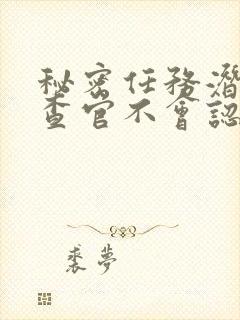 秘密任務潛
查官不會認
裘夢